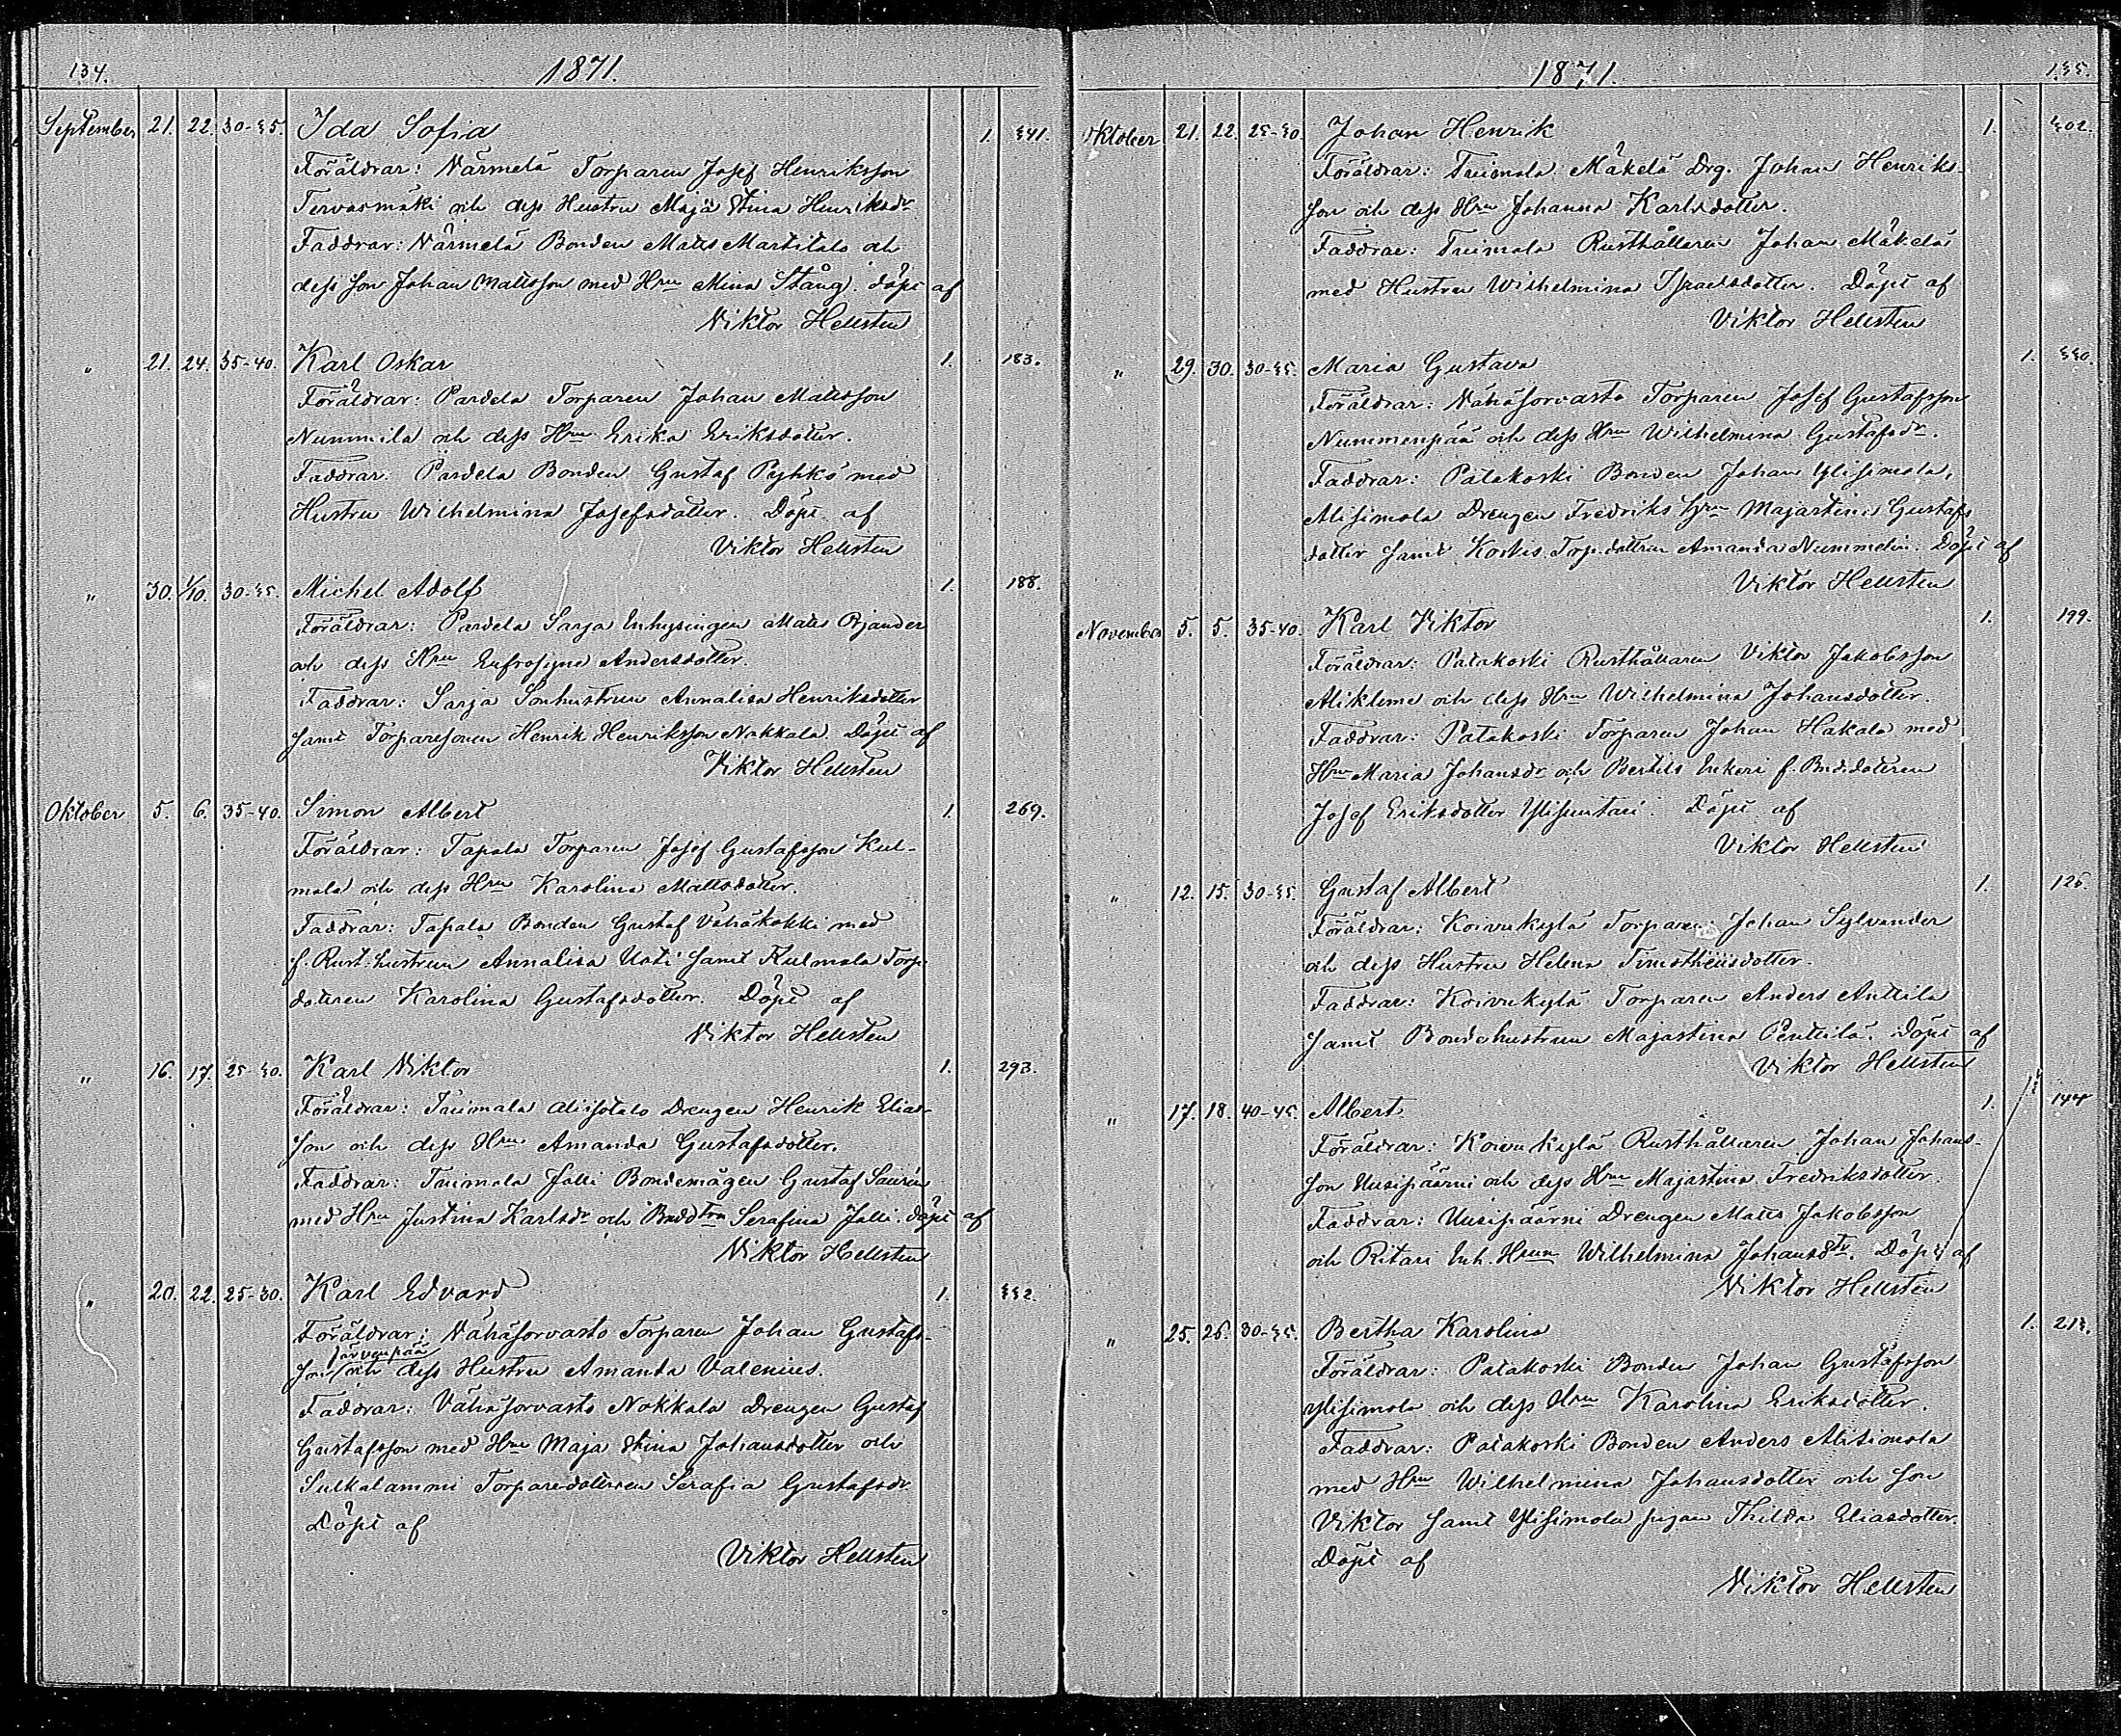 134.
1871.
September 21. 22. 30-35. Ida Sofia 1. 341.
Föräldrar: Närmelä Torparen Josef Henriksson
Tervasmäki och dess Hustru Maja Stina Henriksdr
Faddrar: Närmelä Bonden Matts Martitalo och
dess son Johan Mattsson med Hru Mina Stång. döpt af
Viktor Hellsten
" 21. 24. 35-40. Karl Oskar 1. 183.
Föräldrar: Pardela Torparen Johan Mattsson
Nummila och dess Hru Erika Eriksdotter.
Faddrar: Pardela Bonden Gustaf Pyhkö med
Hustru Wilhelmina Josefsdotter. Döpt af
Viktor Hellsten
" 30. 1/10. 30-35. Michel Adolf 1. 188.
Föräldrar: Pardela Sarja Inhysingen Matts Björnder
och dess Hru Eufrosyne Andersdotter.
Faddrar: Sarja Sonhustrun Annalisa Henriksdotter
samt Torparesonen Henrik Henriksson Nokkala. Döpt af
Viktor Hellsten
Oktober 5. 6. 35-40. Simon Albert 1. 269.
Föräldrar: Tapala Torparen Josef Gustafsson Kul-
mala och dess Hru Karolina Mattsdotter.
Faddrar: Tapala Bonden Gustaf Vähäkokki med
f. Rust. hustrun Annalisa Uoti samt Kulmala Torp.
dottren Karolina Gustafsdotter. Döpt af
Viktor Hellsten
" 16. 17. 25-30. Karl Viktor 1. 293.
Föräldrar: Tuimala Alisotalo Drengen Henrik Elias-
son och dess Hru Amanda Gustafsdotter.
Faddrar: Tuimala Jalli Bondemågen Gustaf Saurén
med Hru Justina Karlsdr och Bndd trn Serafina Jalli. döpt af
Viktor Hellsten
" 20. 22. 25-30. Karl Edvard 1. 332.
Föräldrar: Vähäsorvasto Torparen Johan Gustafs-
Järvenpää
son och dess Hustru Amanda Valenius.
Faddrar: Vähäsorvasto Nokkala Drengen Gustaf
Gustafsson med Hru Maja Stina Johansdotter och
Sulkalammi Torparedottren Serafia Gustafsdr
Döpt af
Viktor Hellsten
1871.
135.
Oktober 21. 22. 25-30. Johan Henrik 1. 302.
Föräldrar: Tuimala Mäkelä Drg. Johan Henriks-
son och dess Hru Johanna Karlsdotter.
Faddrar: Tuimala Rusthållaren Johan Mäkelä
med Hustru Wilhelmina Israelsdotter. Döpt af
Viktor Hellsten
" 29. 30. 30-35. Maria Gustava 1. 330.
Föräldrar: Vähäsorvasto Torparen Josef Gustafsson
Nummenpää och dess Hru Wilhelmina Gustafsdr.
Faddrar: Patakoski Bonden Johan Ylisimola,
Alisimola Drengen Fredriks Hru Majastina Gustafs
dotter samt Koskis Torp. dottren Amanda Nummelin. Döpt af
Viktor Hellsten
November 5. 5. 35-40. Karl Viktor 1. 199.
Föräldrar: Patakoski Rusthållaren Viktor Jakobsson
Alikleme och dess Hru Wilhelmina Johansdotter.
Faddrar: Patakoski Torparen Johan Hakala med
Hru Maria Johansdr och Bertils Inkeri f. Bnd. dottren
Josef Eriksdotter Ylisuntari. Döpt af
Viktor Hellsten
" 12. 15. 30-35. Gustaf Albert 1. 125.
Föräldrar: Koivukylä Torparen Johan Sylvander
och dess Hustru Helena Timotheüsdotter.
Faddrar: Koivukylä Torparen Anders Anttila
samt Bondehustrun Majastina Penttilä. Döpt af
Viktor Hellsten
" 17. 18. 40-45. Albert 1. 144
Föräldrar: Koivukylä Rusthållaren Johan Johans-
son Uusipäärni och dess Hru Majastina Fredriksdotter.
Faddrar: Uusipäärni Drengen Matts Jakobsson
och Ritari Inh. Hrun Wilhelmina Johansdtr. Döpt af
Viktor Hellsten
" 25. 26. 30-35. Bertha Karolina 1. 213.
Föräldrar: Patakoski Bonden Johan Gustafsson
Ylisimola och dess Hru Karolina Eriksdotter.
Faddrar: Patakoski Bonden Anders Alisimola
med Hru Wilhelmina Johansdotter och son
Viktor samt Ylisimola pigan Thilda Eliasdotter.
Döpt af
Viktor Hellsten